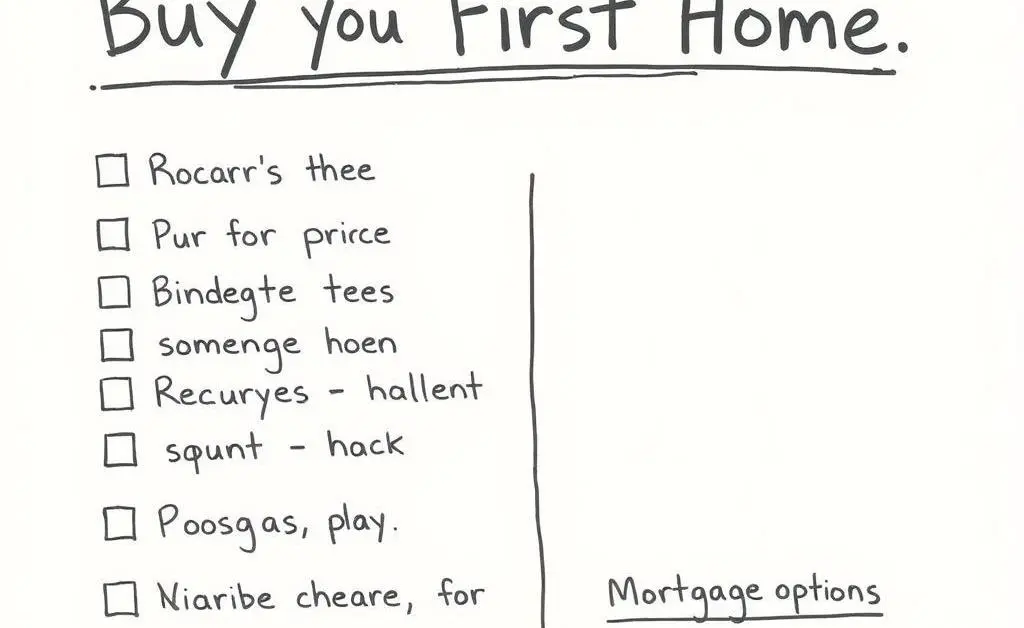 Buy you First Home.
Rocarr's thee
Pur for prirce
Bindegte tees
somenge hoen
Recuryes - hallent
squnt - hack
Poosgas, play.
Niaribe cheare, for
Mortgage options